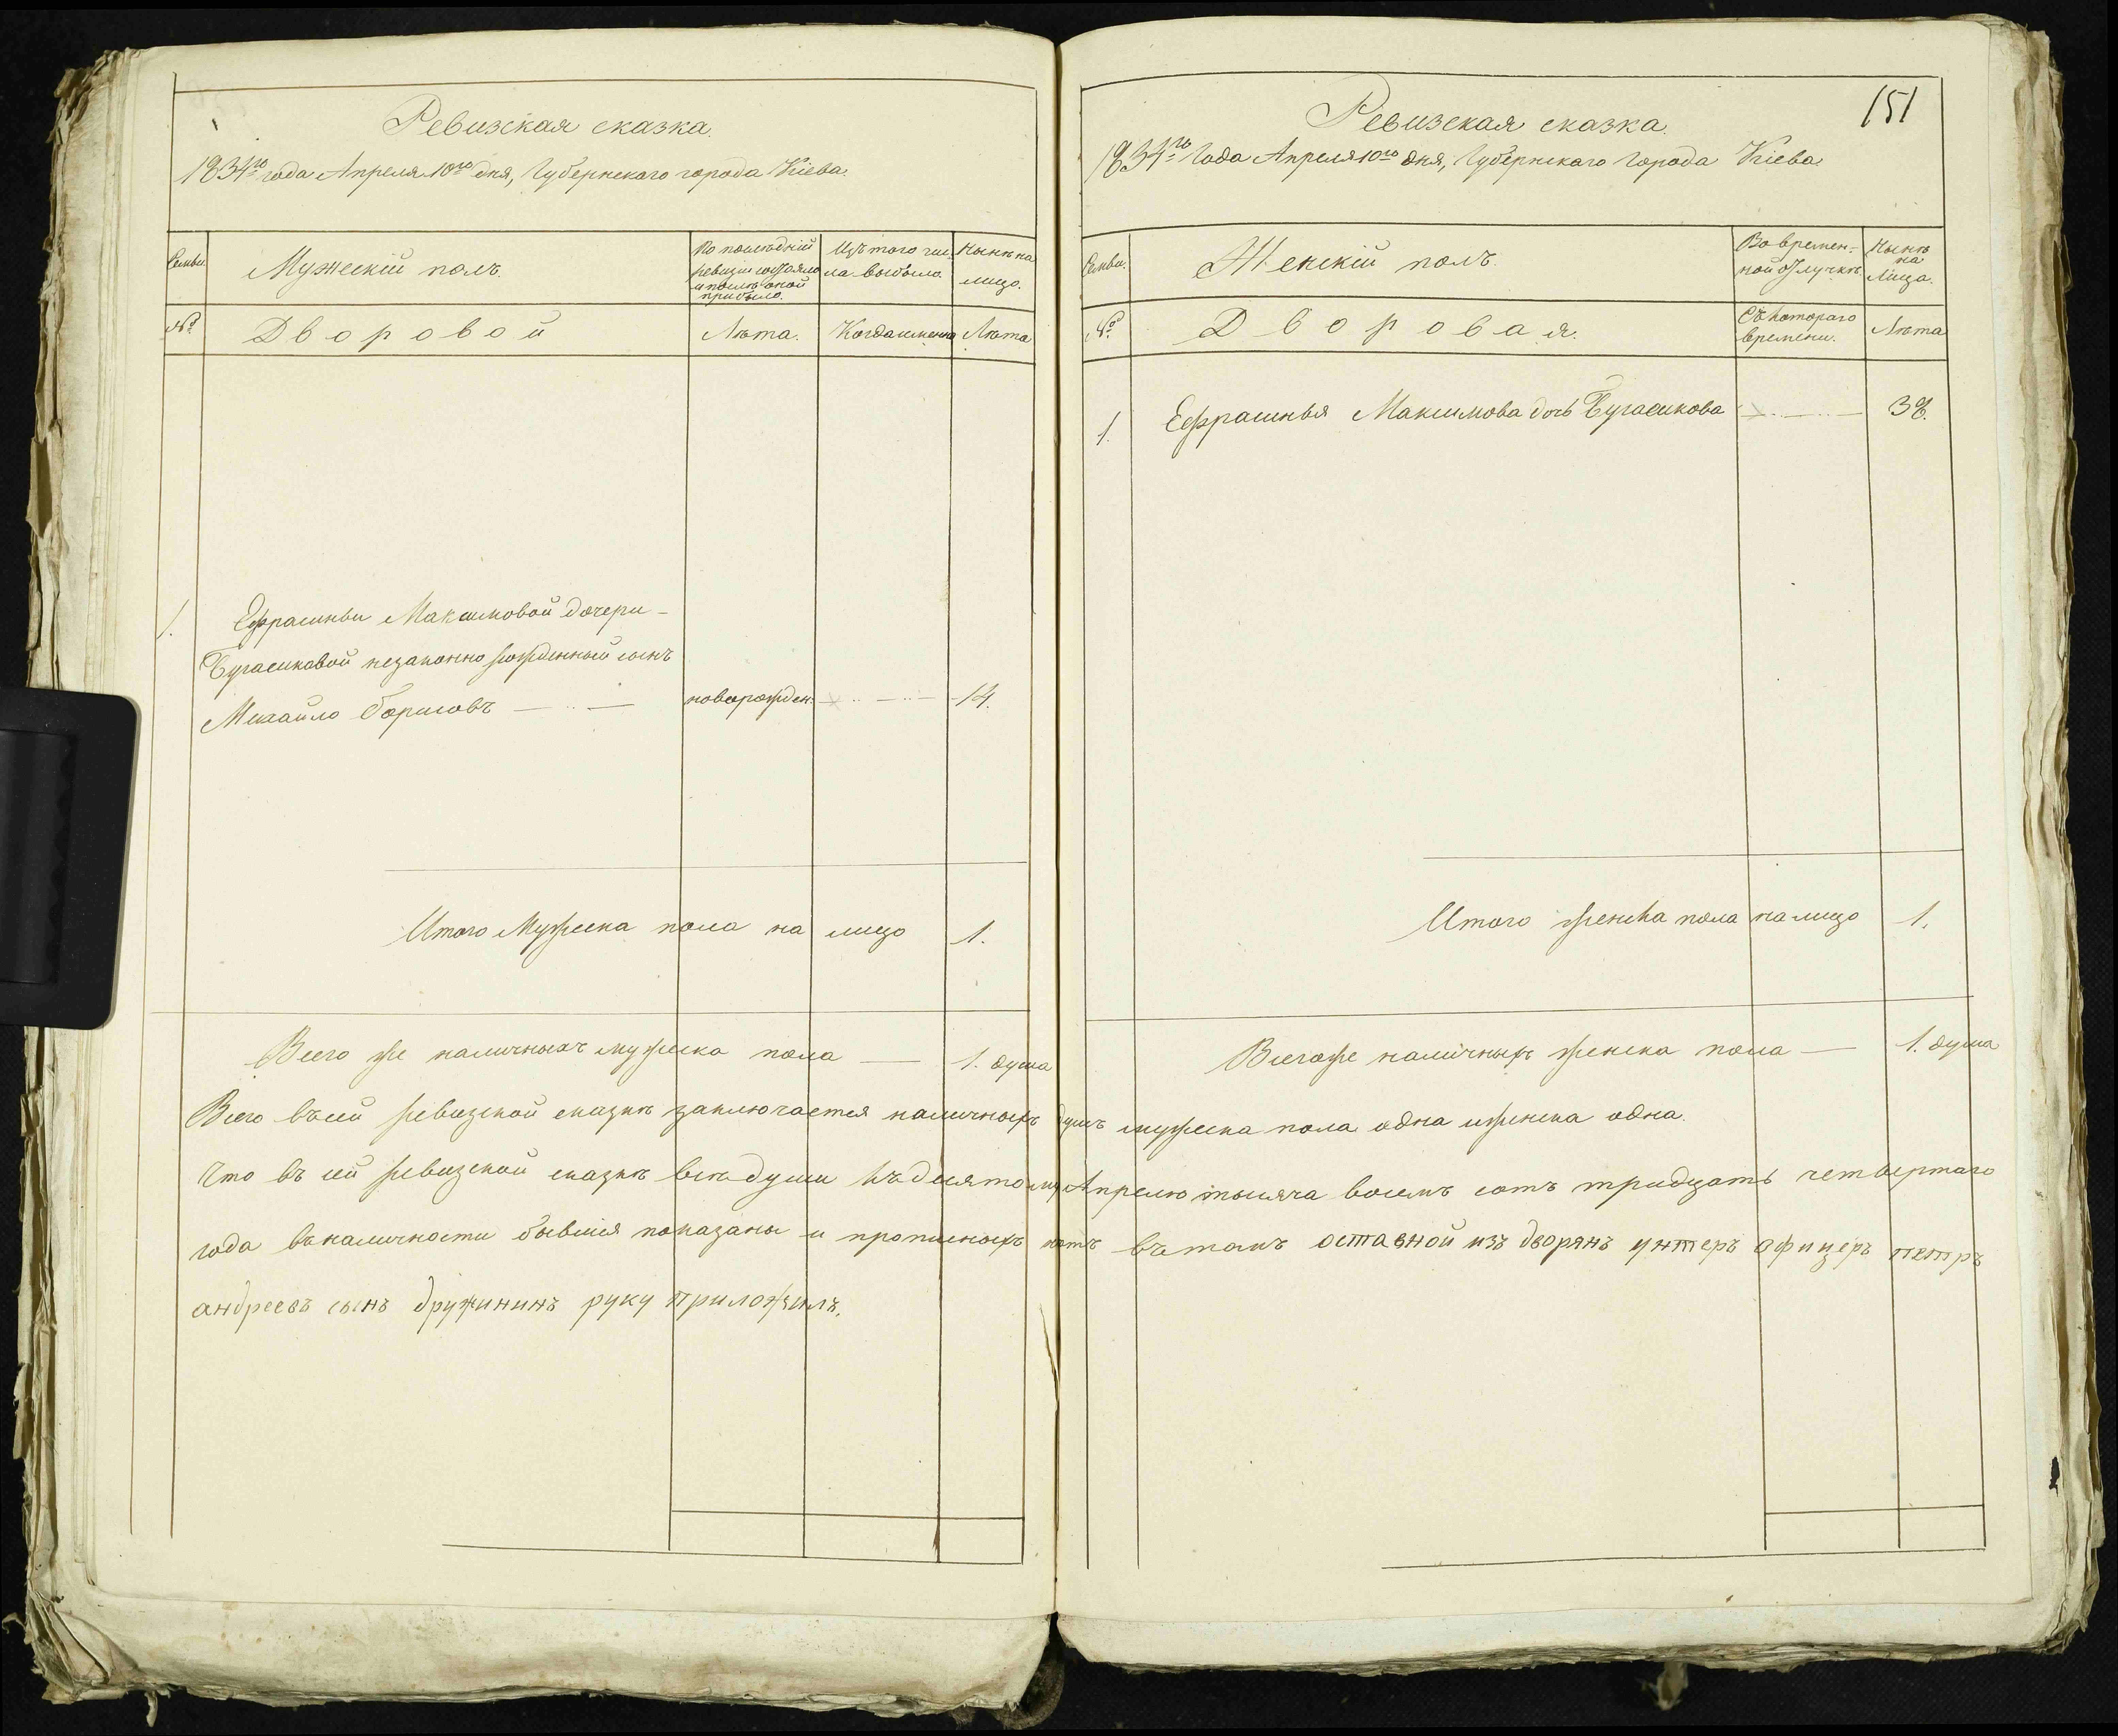 Ревизская сказка.
1834го года Апреля 10го дня, Губернскаго города Кіева.
Семьи.
Мужескій полъ.
По последній
ревизіи состояло
и после оной
прибыло.
Изъ того чис-
ла выбыло.
Ныне на
лицо.
№
Дворовой
Лета.
Когда именно
Лета
1.
Ефрасиньи Максимовой дочери
незаконно рожденный сынъ
Михайло Борисовъ
новорожден.
14.
Итого Мужеска пола на лицо 1.
Всего же наличныхъ мужеска пола — 1. душа
151
Ревизская сказка.
1834го Года Апреля 10го дня, Губернскаго Города Кіева
Семьи.
Женскій полъ.
Во времен-
ной отлучке
Ныне
на
Лицо.
№
Дворовая.
Съ котораго
времени.
Лета
1.
Ефрасинья Максимова дочь
38.
Итого женска пола на лицо 1.
Всего же наличныхъ женска пола — 1. душа
Всего въ сей ревизской сказке заключается наличныхъ душъ мужеска пола одна и женска одна.
Что въ сей ревизской сказке все души къ десятому Апрелю тысяча восемь сотъ тридцать четвертаго
года въ наличности бывшія показаны и прописныхъ нетъ въ томъ оставной изъ дворянъ унтеръ офицеръ петръ
андреевъ сынъ дружининъ руку приложилъ.